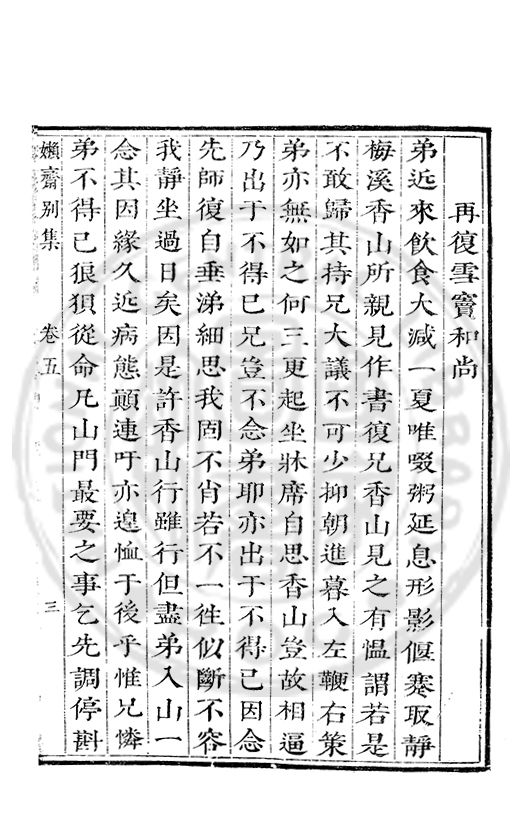 再復雪竇和尚
弟近來飲食大減一夏唯啜粥延息形影偃蹇取靜
梅溪香山所親見作書復兄香山見之有慍謂若是
不敢歸其待兄大議不可少抑朝進暮入左鞭右策
弟亦無如之何三更起坐牀席自思香山豈故相逼
乃出于不得已兄豈不念弟耶亦出于不得已因念
先師復自垂涕細思我固不肖若不一徃似斷不容
我靜坐過日矣因是許香山行雖行但盡弟入山一
念其因緣久近病態顚連吁亦遑恤于後乎惟兄憐
弟不得已狼狽從命凡山門最要之事乞先調停斟
嬾齋別集
卷五
三